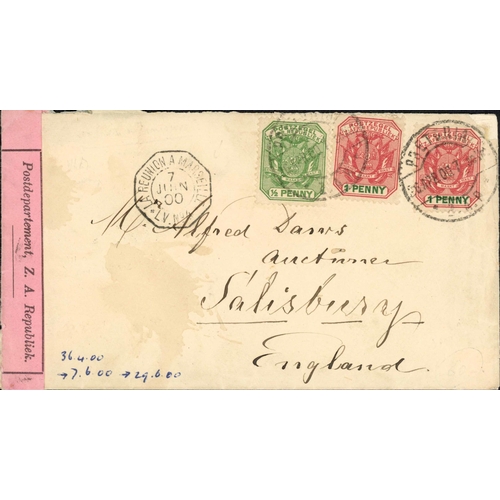 Postdepartement, Z. A. Republiek.
LA REUNION A MARSEILLE
7
JUIN
00
POSTZEGEL
½ PENNY
POSTZEGEL
1 PENNY
POSTZEGEL
1 PENNY
Mr Alfred Daws
Auctioneer
Salisbury
England.
→7.6.00 →29.6.00